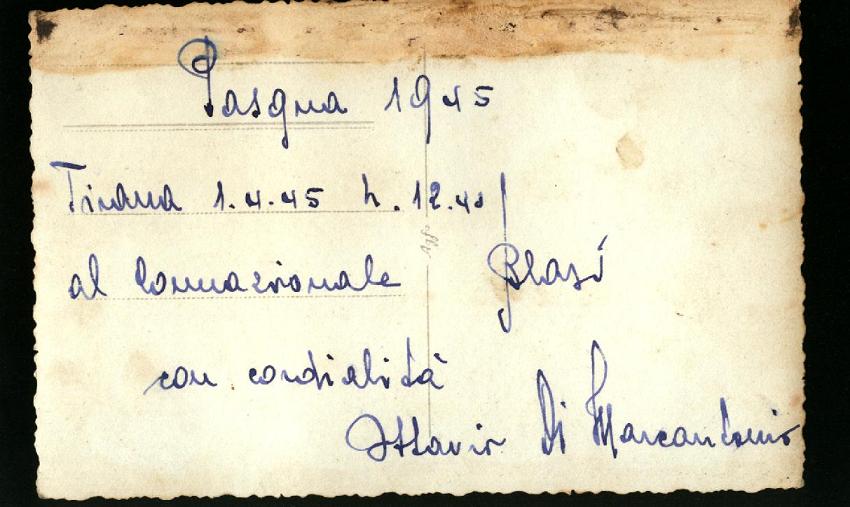 Pasqua 1945
Tirana 1.4.45 h. 12.40
al connazionale Blasi
con cordialità
Ottavio Di Marcantonio